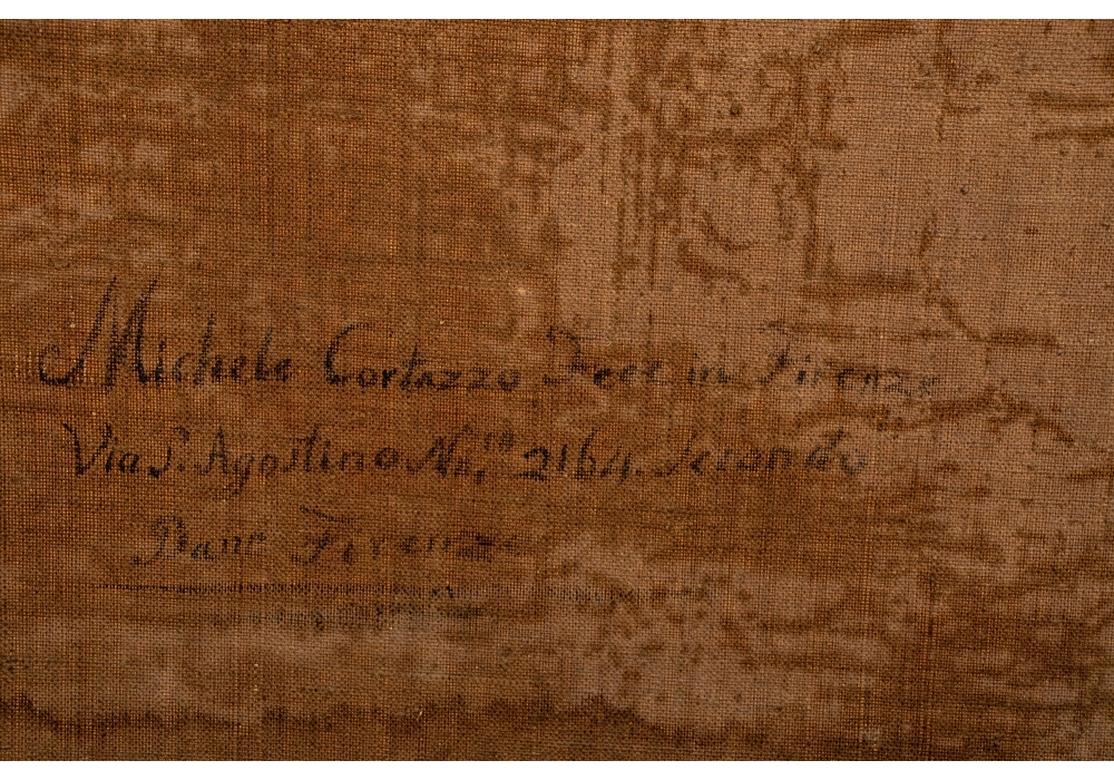 Michele Cortazzo Fece in Firenze
Via S. Agostino No. 2164. Secondo
Piano Firenze